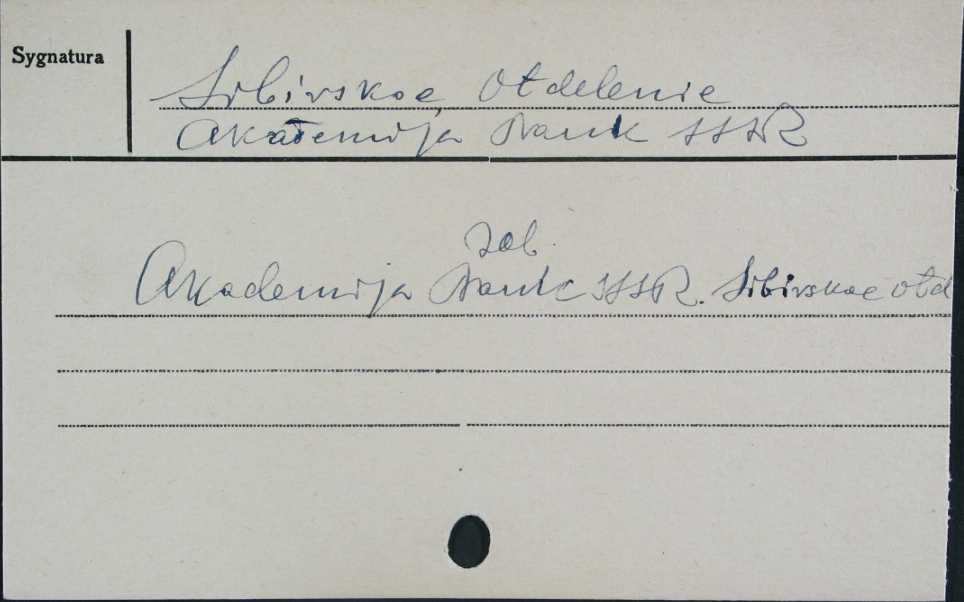 Sygnatura
Sibirskoe otdelenie
Akademija Nauk SSSR
zob.
Akademija Nauk SSSR. Sibirskoe otd